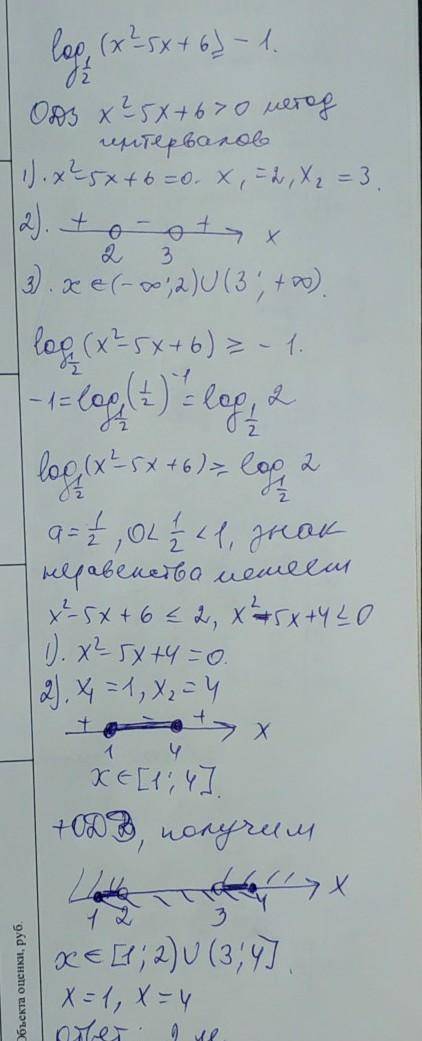 log½(x²-5x+6)≥-1.
ОДЗ x²-5x+6>0 метод
интервалов
1). x²-5x+6=0. x₁=2, x₂=3.
2). + - + x
2 3
3). x∈(-∞;2)∪(3;+∞).
log½(x²-5x+6)≥-1.
-1=log½(½)⁻¹=log½2
log½(x²-5x+6)≥log½2
a=½, 0<½<1, знак
неравенства меняем
x²-5x+6≤2, x²-5x+4≤0
1). x²-5x+4=0.
2). x₁=1, x₂=4
+ - + x
1 4
x∈[1;4].
+ОДЗ, получим
x
1 2 3 4
x∈[1;2)∪(3;4].
x=1, x=4
ответ:
Объекта оценки, руб.